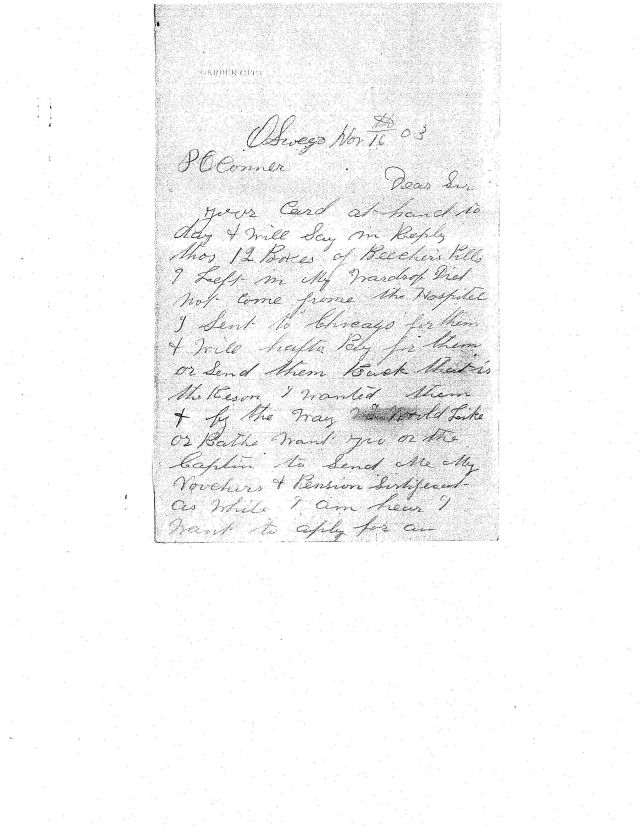 GARDEN CITY
Oswego Nov 16th 03
P O Conner
Dear Sir
your Card at hand to
day & Will Say in Reply
thos 12 Boxes of Beechers Pills
I Left in My Wardrop Did
Not Come frome the Hospitel
I Sent to Chicago for them
& Will hafta Pay for them
or Send them Back that is
the Reson I wanted them
& by the Way I Would Like
or Rathe Want you or the
Captin to Send Me My
Vouchers & Pension Sirtifecut
as While I am hear I
Want to aply for an